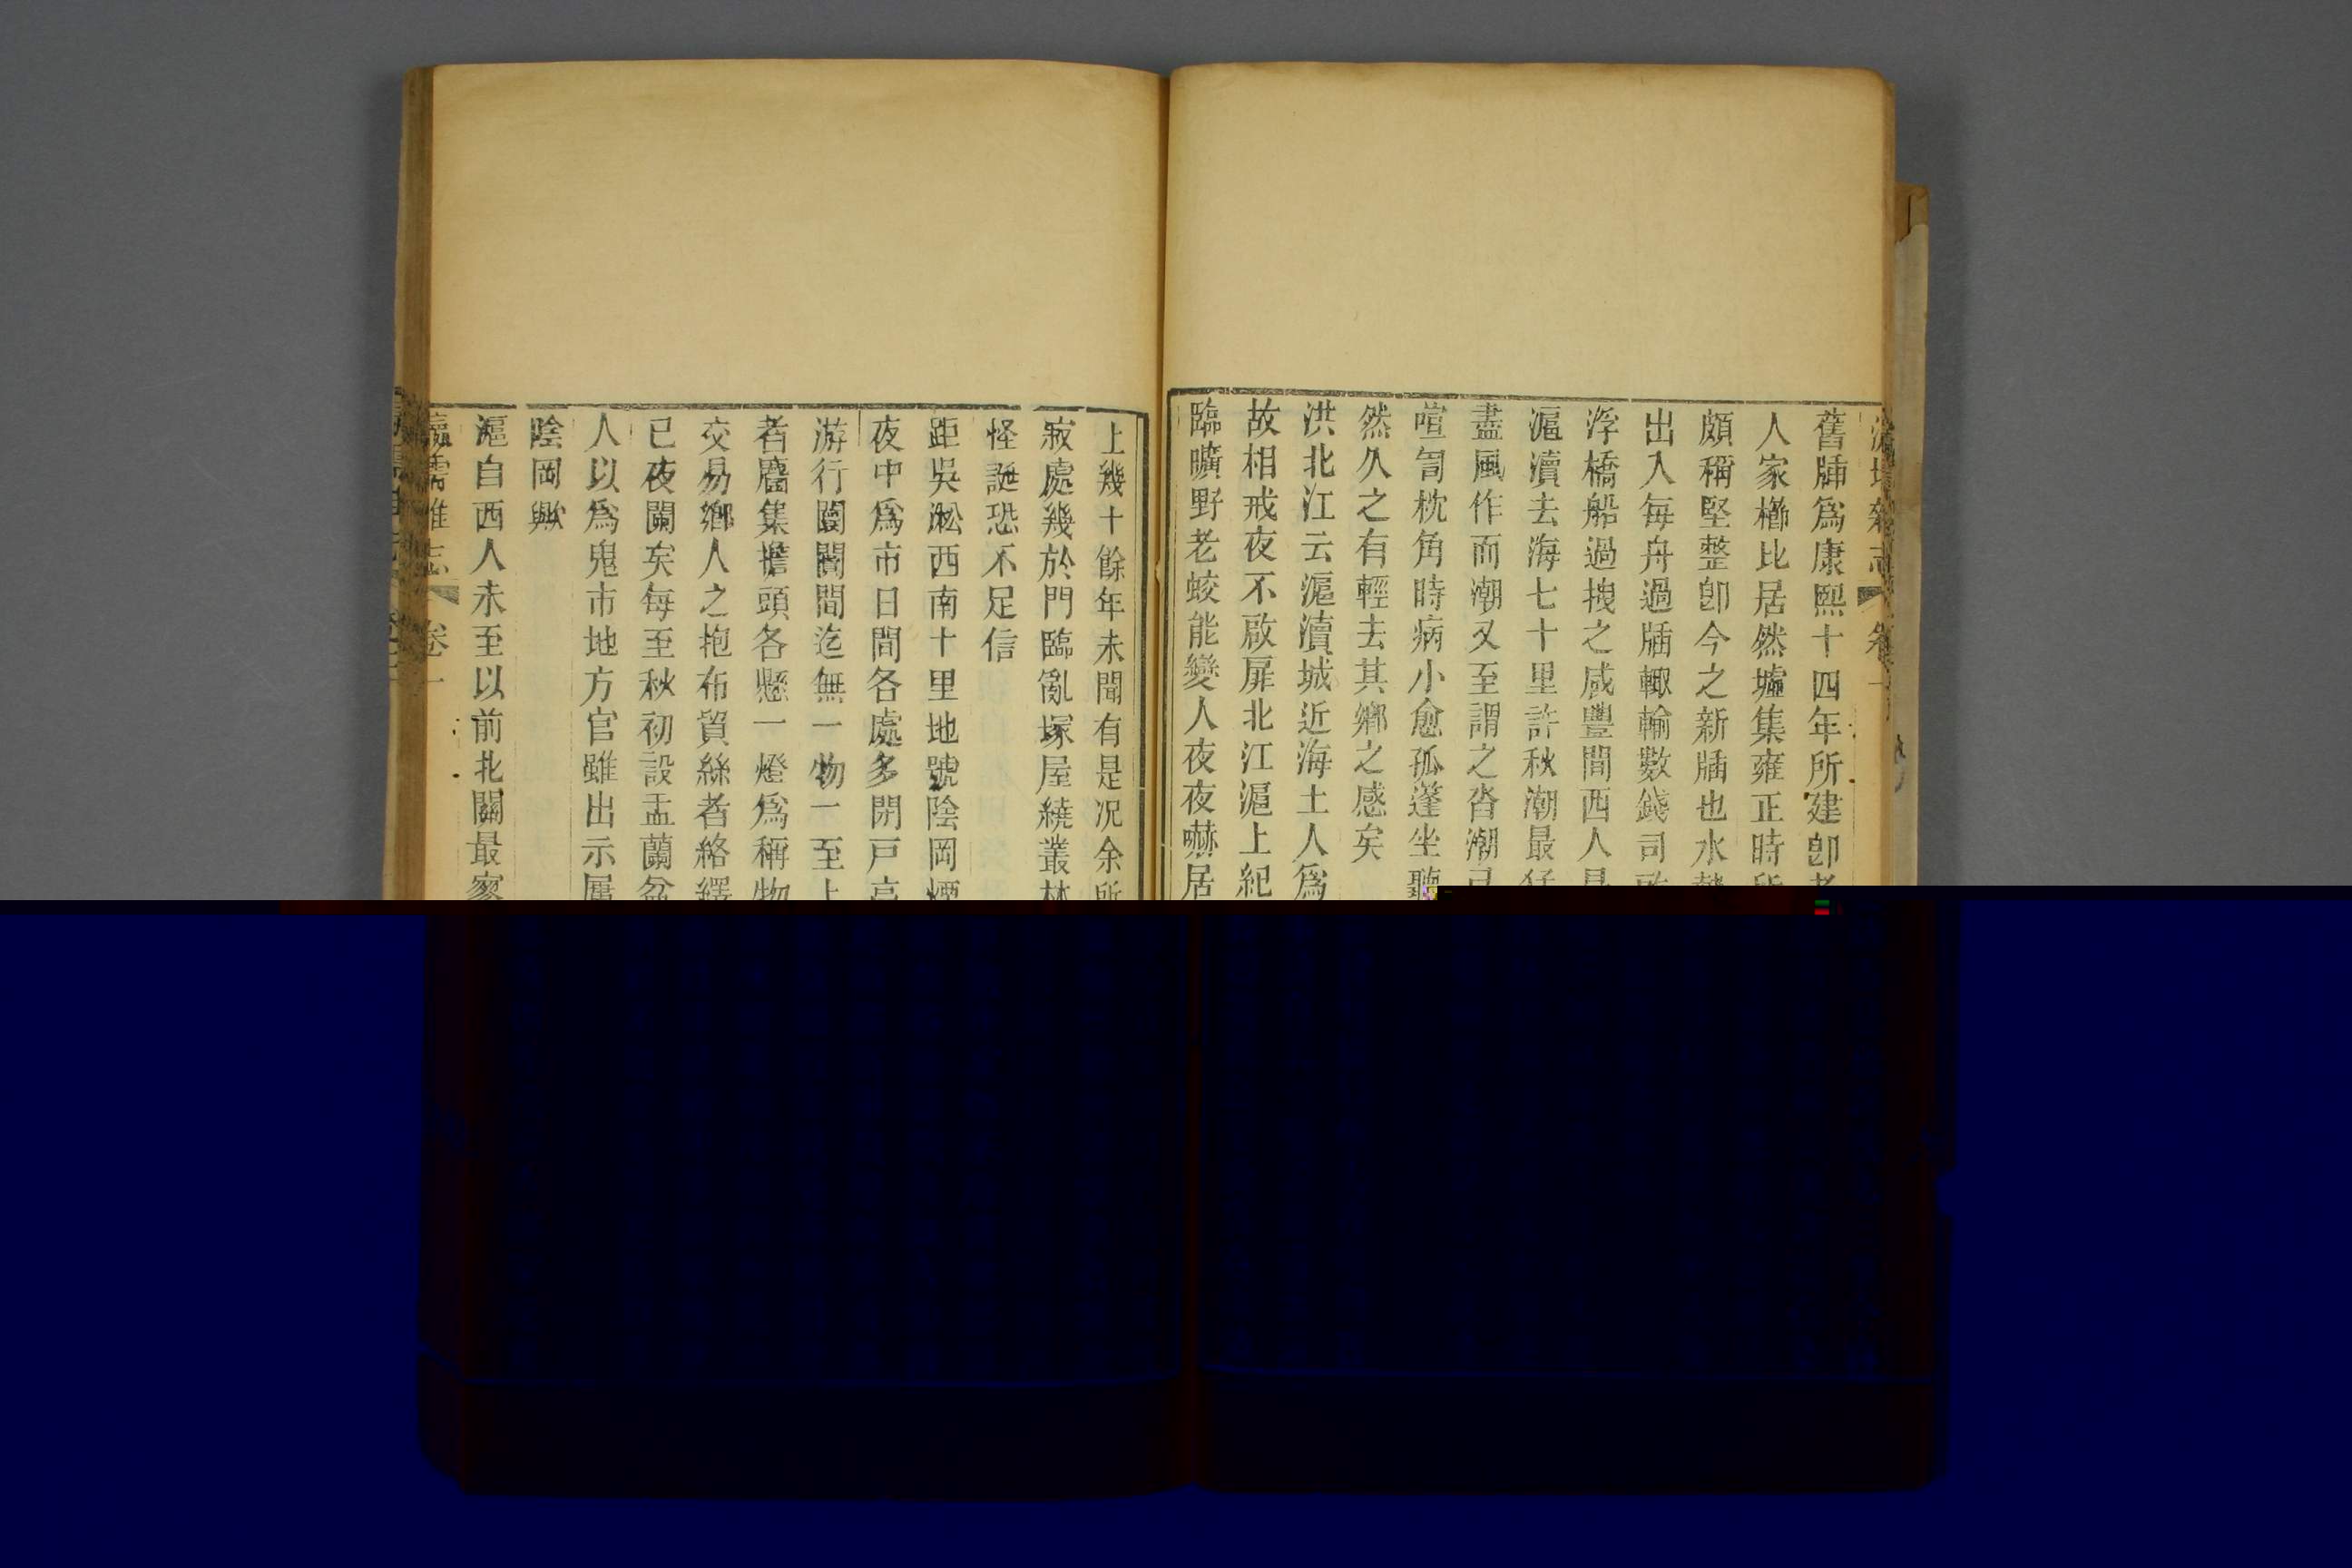 舊牐爲康熙十四年所建卽
人家櫛比居然墟集雍正時
頗稱堅整卽今之新牐也水
出入每舟過牐輙輸數錢司
浮橋船過拽之咸豐間西人
滬瀆去海七十里許秋潮最猛
盡風作而潮又至謂之沓潮
喧訇枕角時病小愈孤篷坐聽
然久之有輕去其鄉之感矣
洪北江云滬瀆城近海土人爲
故相戒夜不啟扉北江滬上紀
臨曠野老蛟能變人夜夜嚇居
上幾十餘年未聞有是况余所
寂處幾於門臨亂塚屋繞叢林
怪誕恐不足信
距吳淞西南十里地號陰岡煙
夜中爲市日間各處多閉戸
游行闤闠間迄無一物一至上
者麕集擔頭各懸一燈爲稱物
交易鄉人之抱布貿絲者絡繹
已夜闌矣每至秋初設盂蘭盆
人以爲鬼市地方官雖出示
陰岡歟
滬自西人未至以前北關最寥
瀛壖雜志 卷一